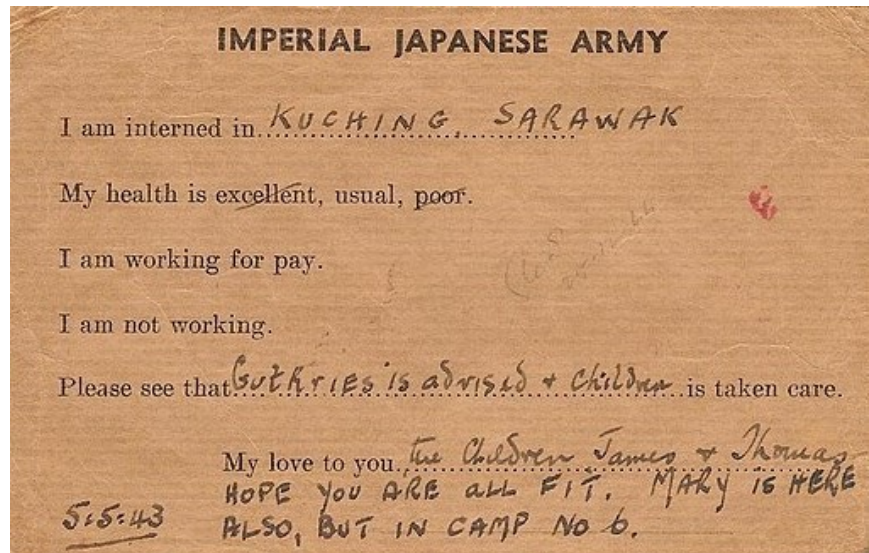 IMPERIAL JAPANESE ARMY
I am interned in KUCHING, SARAWAK
My health is excellent, usual, poor.
I am working for pay.
I am not working.
Please see that Guthries is advised + children is taken care.
My love to you the Children James + Thomas
HOPE YOU ARE ALL FIT. MARY IS HERE
5:5:43 ALSO, BUT IN CAMP No 6.